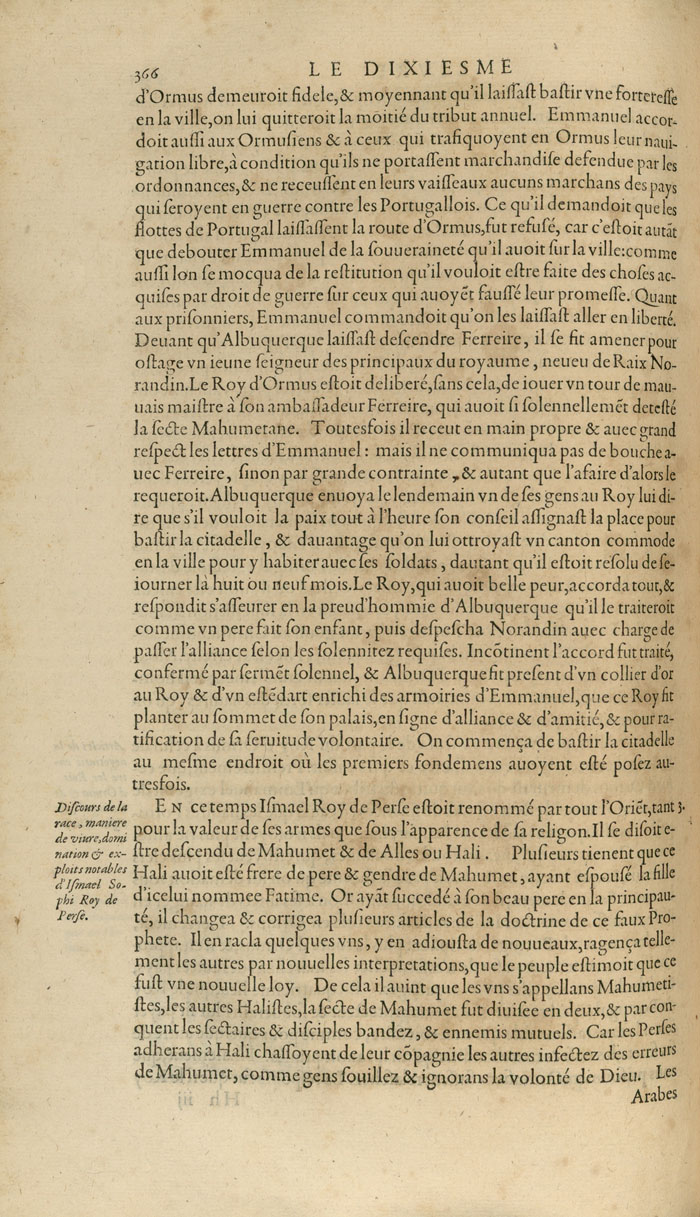 366
LE DIXIESME
d'Ormus demeuroit fidele,& moyennant qu'il laiſſaſt baſtir vne fortereſſe
en la ville,on lui quitteroit la moitié du tribut annuel. Emmanuel accor-
doit auſſi aux Ormuſiens & à ceux qui trafiquoyent en Ormus leur naui-
gation libre,à condition qu'ils ne portaſſent marchandiſe defendue par les
ordonnances,& ne receuſſent en leurs vaiſſeaux aucuns marchans des pays
qui ſeroyent en guerre contre les Portugallois. Ce qu'il demandoit que les
flottes de Portugal laiſſaſſent la route d'Ormus,fut refuſé, car c'eſtoit autãt
que debouter Emmanuel de la ſouueraineté qu'il auoit ſur la ville:comme
auſſi lon ſe mocqua de la reſtitution qu'il vouloit eſtre faite des choſes ac-
quiſes par droit de guerre ſur ceux qui auoyẽt fauſſé leur promeſſe. Quant
aux priſonniers, Emmanuel commandoit qu'on les laiſſaſt aller en liberté.
Deuant qu'Albuquerque laiſſaſt deſcendre Ferreire, il ſe fit amener pour
oſtage vn ieune ſeigneur des principaux du royaume, neueu de Raix No-
randin.Le Roy d'Ormus eſtoit deliberé,ſans cela,de iouer vn tour de mau-
uais maiſtre à ſon ambaſſadeur Ferreire, qui auoit ſi ſolennellemẽt deteſté
la ſecte Mahumetane. Toutesfois il receut en main propre & auec grand
reſpect les lettres d'Emmanuel: mais il ne communiqua pas de bouche a-
uec Ferreire, ſinon par grande contrainte, & autant que l'afaire d'alors le
requeroit.Albuquerque enuoya le lendemain vn de ſes gens au Roy lui di-
re que s'il vouloit la paix tout à l'heure ſon conſeil aſſignaſt la place pour
baſtir la citadelle, & dauantage qu'on lui ottroyaſt vn canton commode
en la ville pour y habiter auec ſes ſoldats, dautant qu'il eſtoit reſolu de ſe-
iourner là huit ou neuf mois.Le Roy,qui auoit belle peur,accorda tout,&
reſpondit s'aſſeurer en la preud'hommie d'Albuquerque qu'il le traiteroit
comme vn pere fait ſon enfant, puis deſpeſcha Norandin auec charge de
paſſer l'alliance ſelon les ſolennitez requiſes. Incõtinent l'accord fut traité,
confermé par ſermẽt ſolennel, & Albuquerque fit preſent d'vn collier d'or
au Roy & d'vn eſtẽdart enrichi des armoiries d'Emmanuel,que ce Roy fit
planter au ſommet de ſon palais,en ſigne d'alliance & d'amitié,& pour ra-
tification de ſa ſeruitude volontaire. On commença de baſtir la citadelle
au meſme endroit où les premiers fondemens auoyent eſté poſez au-
tresfois.
Diſcours de la
race, maniere
de viure,domi
nation & ex-
ploits notables
d'Iſmael So-
phi Roy de
Perſe.
EN ce temps Iſmael Roy de Perſe eſtoit renommé par tout l'Oriẽt,tant 3.
pour la valeur de ſes armes que ſous l'apparence de ſa religon.Il ſe diſoit e-
ſtre deſcendu de Mahumet & de Alles ou Hali. Pluſieurs tienent que ce
Hali auoit eſté frere de pere & gendre de Mahumet, ayant eſpouſé la fille
d'icelui nommee Fatime. Or ayãt ſuccedé à ſon beau pere en la principau-
té, il changea & corrigea pluſieurs articles de la doctrine de ce faux Pro-
phete. Il en racla quelques vns, y en adiouſta de nouueaux,ragença telle-
ment les autres par nouuelles interpretations,que le peuple eſtimoit que ce
fuſt vne nouuelle loy. De cela il auint que les vns s'appellans Mahumeti-
ſtes,les autres Haliſtes,la ſecte de Mahumet fut diuiſee en deux,& par con-
quent les ſectaires & diſciples bandez, & ennemis mutuels. Car les Perſes
adherans à Hali chaſſoyent de leur cõpagnie les autres infectez des erreurs
de Mahumet, comme gens ſouillez & ignorans la volonté de Dieu. Les
Arabes